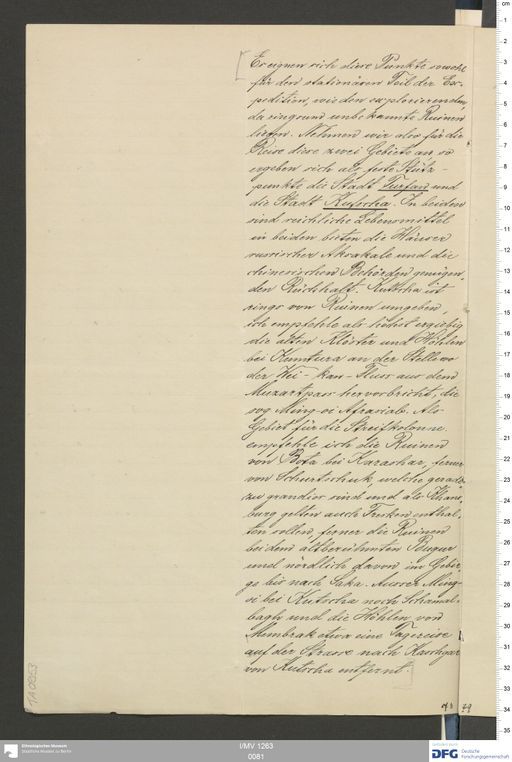 Er eignen sich diese Punkte sowohl
für den stationären Teil der Ex-
pedition, wie den explorierenden,
da ringsum unbekannte Ruinen
liegen. Nehmen wir also für die
Reise diese zwei Gebiete an so
ergeben sich als feste Stütz-
punkte die Stadt Turfan und
die Stadt Kutscha. In beiden
sind reichliche Lebensmittel
in beiden bieten die Häuser
russischer Aksakale und die
chinesischen Behörden genügen-
den Rückhalt. Kutscha ist
rings von Ruinen umgeben,
ich empfehle als höchst ergiebig
die alten Klöster und Höhlen
bei Kumtura an der Stelle wo
der Wei-kan-Fluss aus dem
Muzartpass hervorbricht, die
sog. Ming-oi Afrasiab. Als
Gebiet für die Streifkolonne
empfehle ich die Ruinen
von Bota bei Karaschar, ferner
von Schurtschuk, welche gerade
zu grandios sind und als
burg gelten auch Fresken enthal-
ten sollen, ferner die Ruinen
bei dem altberühmten Bugur
und nördlich davon im Gebir-
ge bis nach Saka. Ausser Ming-
oi bei Kutscha noch Schamal-
bagh und die Höhlen von
Mumbrak etwa eine Tagereise
auf der Strasse nach Kaschgar
von Kutscha entfernt.
79
TA 0853
Ethnologisches Museum
Staatliche Museen zu Berlin
I/MV 1263
0081
DFG
Deutsche
Forschungsgemeinschaft